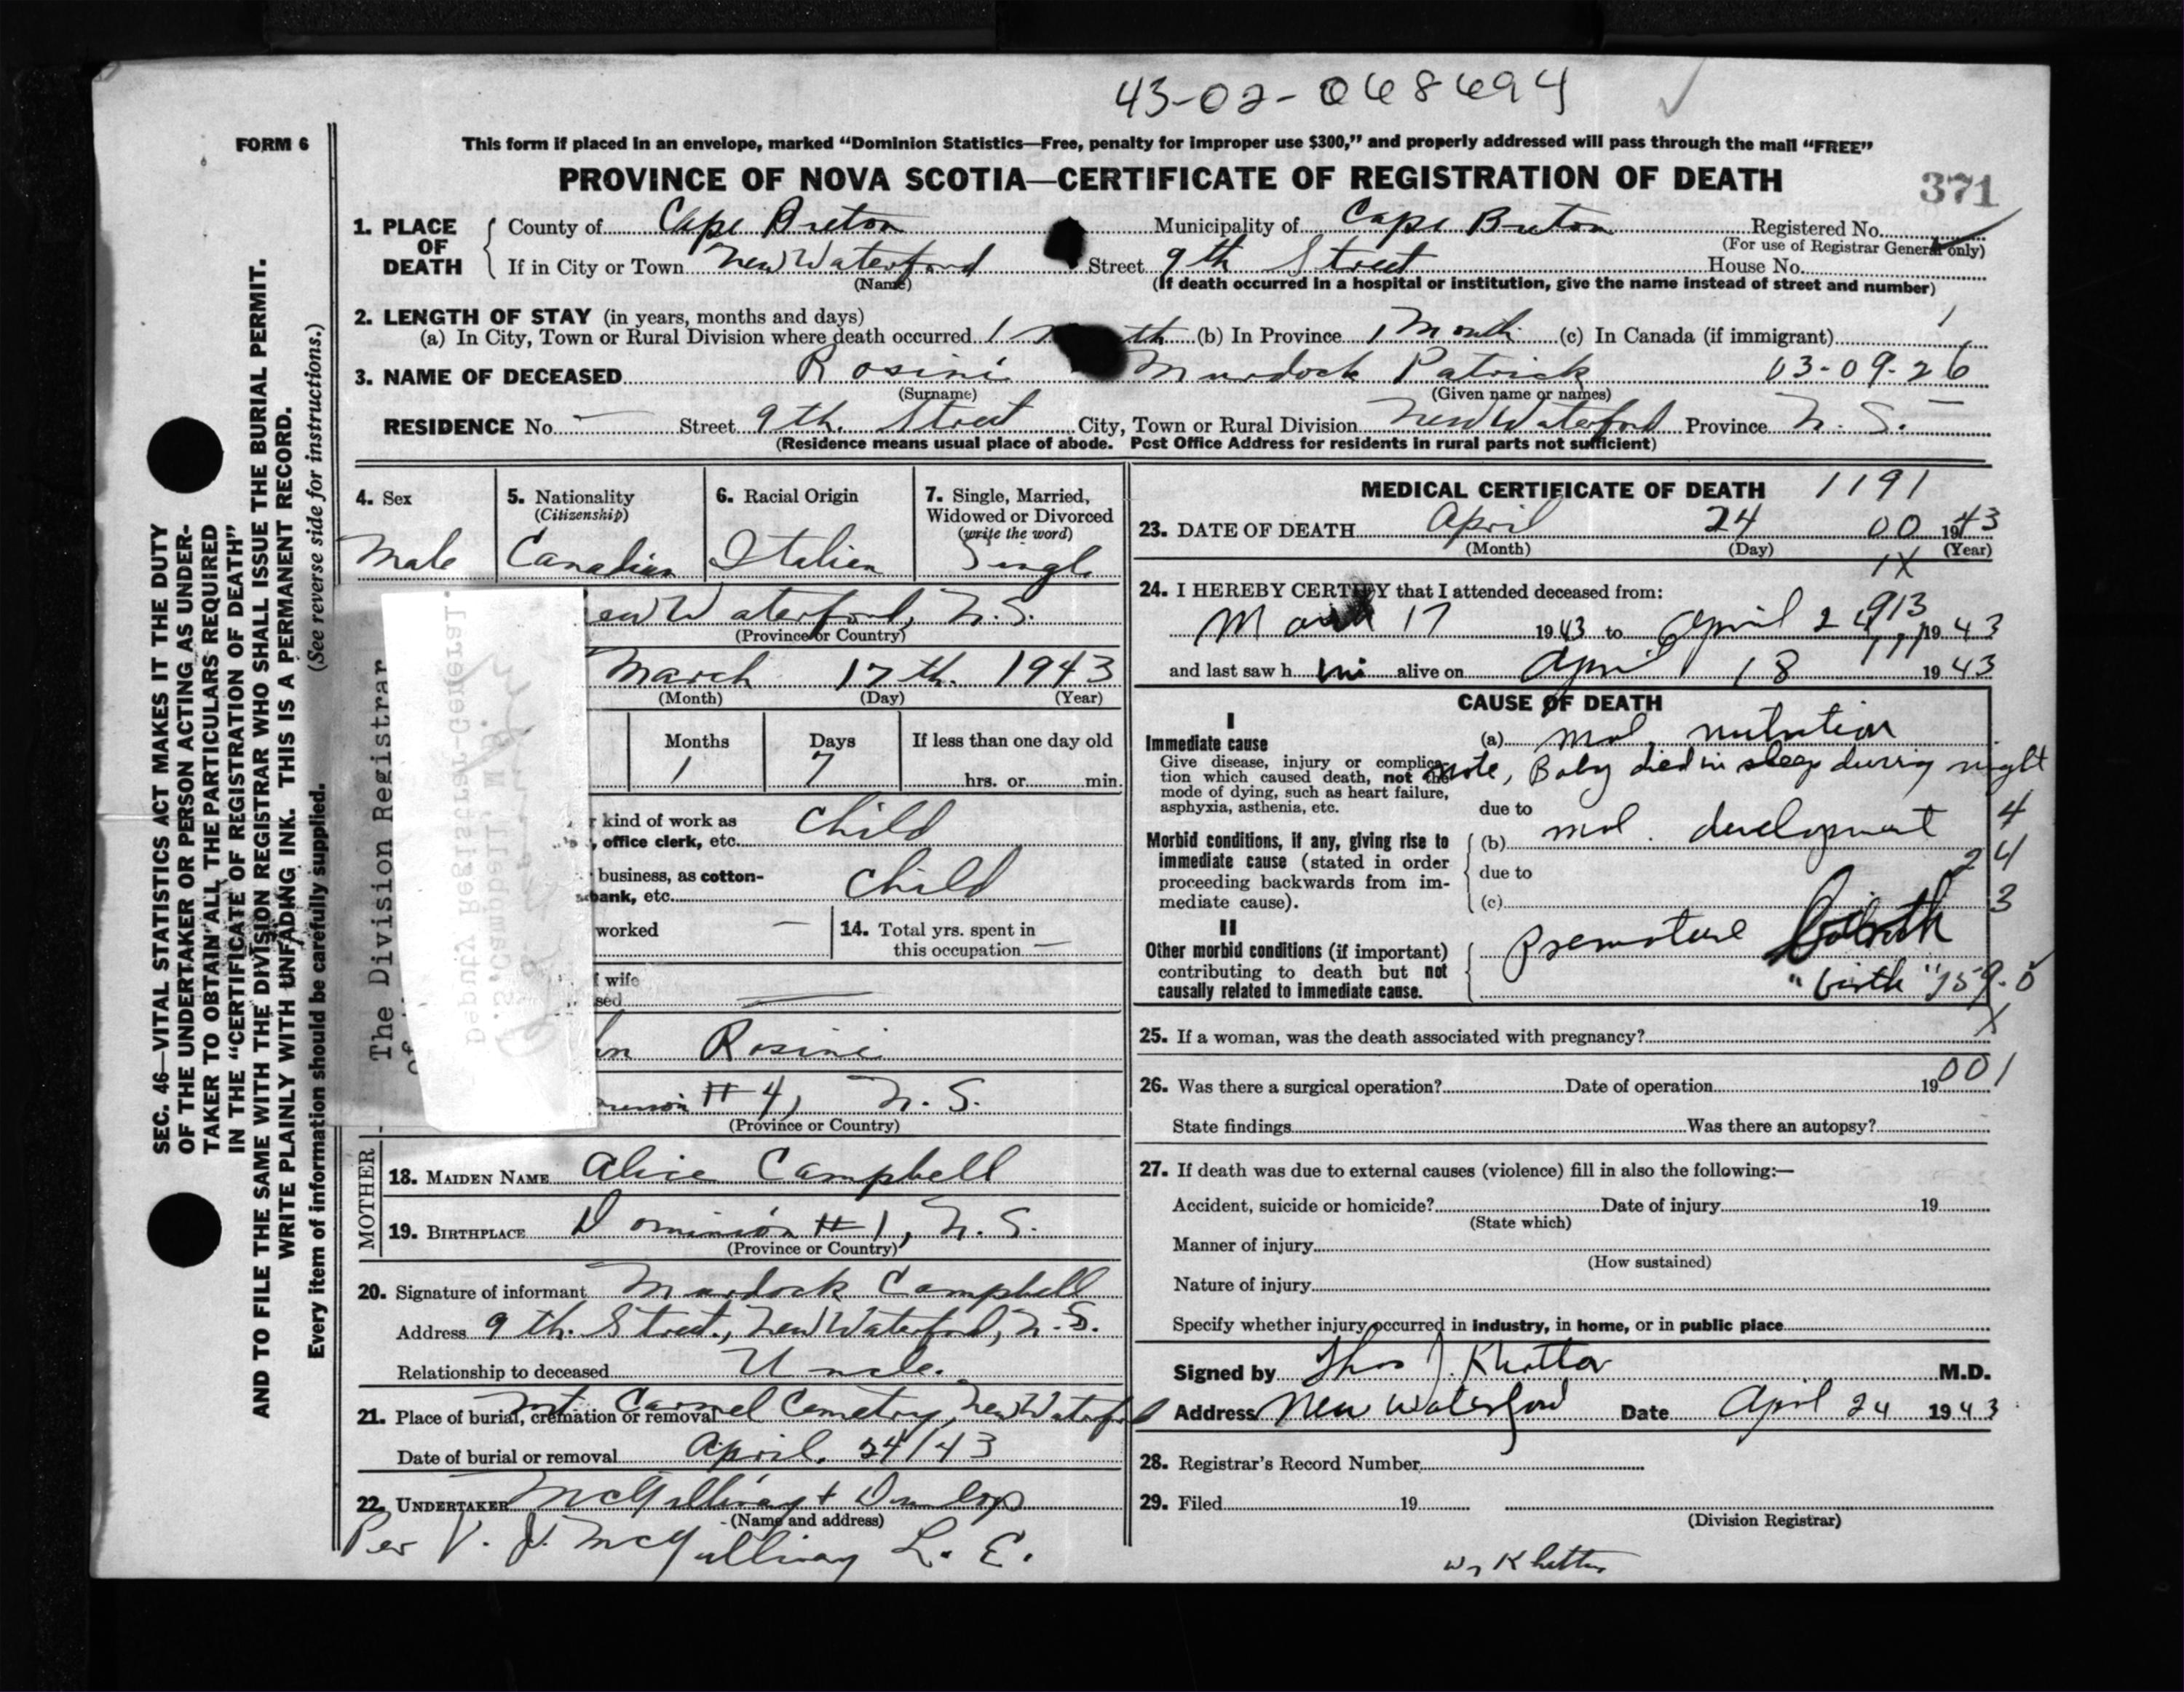 43-02-068694
FORM 6
This form if placed in an envelope, marked “Dominion Statistics—Free, penalty for improper use $300,” and properly addressed will pass through the mail “FREE”
PROVINCE OF NOVA SCOTIA—CERTIFICATE OF REGISTRATION OF DEATH
371
1. PLACE OF DEATH County of Cape Breton Municipality of Cape Breton Registered No.
(For use of Registrar General only)
If in City or Town New Waterford Street 9th Street House No.
(Name) (If death occurred in a hospital or institution, give the name instead of street and number)
2. LENGTH OF STAY (in years, months and days)
(a) In City, Town or Rural Division where death occurred 1 th (b) In Province 1 Month (c) In Canada (if immigrant)
1
3. NAME OF DECEASED Rosini Murdock Patrick 03-09-26
(Surname) (Given name or names)
RESIDENCE No. — Street 9th. Street City, Town or Rural Division New Waterford Province N. S.
(Residence means usual place of abode. Post Office Address for residents in rural parts not sufficient)
4. Sex
Male
5. Nationality
(Citizenship)
Canadian
6. Racial Origin
Italian
7. Single, Married, Widowed or Divorced
(write the word)
Single
ew Waterford, N.S.
(Province or Country)
March 17th. 1943
(Month) (Day) (Year)
Months Days If less than one day old
1 7 hrs. or min.
kind of work as
, office clerk, etc. Child
business, as cotton-
bank, etc. Child
worked — 14. Total yrs. spent in
this occupation —
f wife
sed —
hn Rosini
#4, N. S.
(Province or Country)
MOTHER
18. MAIDEN NAME Alice Campbell
19. BIRTHPLACE Dominion #1, N. S.
(Province or Country)
20. Signature of informant Murdock Campbell
Address 9th. Street, New Waterford, N.S.
Relationship to deceased Uncle.
21. Place of burial, cremation or removal Mt Carmel Cemetry, New Waterford
Date of burial or removal April. 24/43
22. UNDERTAKER McGillivay + Dunlop
(Name and address)
Per V. J. McGillivay L. E.
MEDICAL CERTIFICATE OF DEATH 1191
23. DATE OF DEATH April 24 00 1943
(Month) (Day) (Year)
1X
24. I HEREBY CERTIFY that I attended deceased from:
913
March 17 1943 to April 24 1943
and last saw him alive on April 18 1943
CAUSE OF DEATH
I
Immediate cause
Give disease, injury or complication which caused death, not the mode of dying, such as heart failure, asphyxia, asthenia, etc.
(a) mal nutrition
note, Baby died in sleep during night
due to
4
Morbid conditions, if any, giving rise to immediate cause (stated in order proceeding backwards from immediate cause).
(b) mal. development
24
due to
(c)
3
II
Other morbid conditions (if important) contributing to death but not causally related to immediate cause.
Premature
"birth" 159.0
25. If a woman, was the death associated with pregnancy? X
26. Was there a surgical operation? Date of operation 19 001
State findings Was there an autopsy?
27. If death was due to external causes (violence) fill in also the following:—
Accident, suicide or homicide? Date of injury 19
(State which)
Manner of injury
(How sustained)
Nature of injury
Specify whether injury occurred in industry, in home, or in public place
Signed by Thos J. Khattar M.D.
Address New Waterford Date April 24 1943
28. Registrar's Record Number
29. Filed 19
(Division Registrar)
SEC. 46—VITAL STATISTICS ACT MAKES IT THE DUTY
OF THE UNDERTAKER OR PERSON ACTING AS UNDER-
TAKER TO OBTAIN ALL THE PARTICULARS REQUIRED
IN THE “CERTIFICATE OF REGISTRATION OF DEATH”
AND TO FILE THE SAME WITH THE DIVISION REGISTRAR WHO SHALL ISSUE THE BURIAL PERMIT.
WRITE PLAINLY WITH UNFADING INK. THIS IS A PERMANENT RECORD.
Every item of information should be carefully supplied. (See reverse side for instructions.)
The Division Registrar
Deputy Registrar-General.